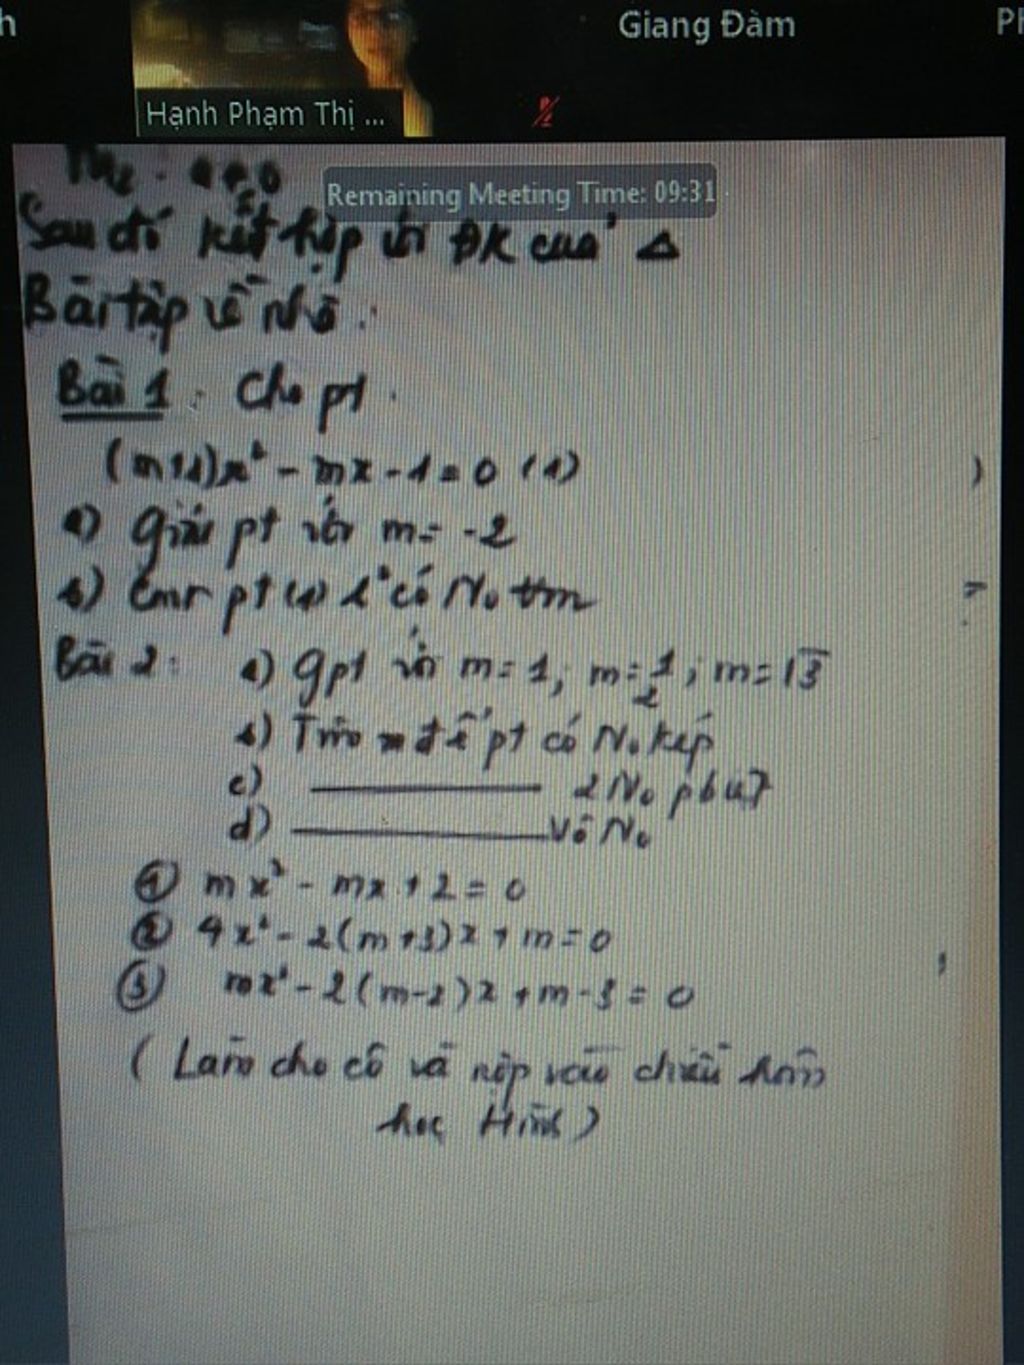 h
Giang Đàm
Ph
Hạnh Phạm Thị ...
Remaining Meeting Time: 09:31
Sau đó kết hợp với ĐK của Δ
Bài tập về nhà:
Bài 1: Cho pt
(m+1)x² - mx - 1 = 0 (1)
a) Giải pt với m = -2
b) Cmr pt (1) l² có No ∀m
Bài 2: a) Gpt với m = 1; m = 1/2; m = √3
b) Tìm m để pt có No kép
c) ——— 2 No pbiệt
d) ——— Vô No
① mx² - mx + 2 = 0
② 4x² - 2(m+3)x + m = 0
③ mx² - 2(m-2)x + m - 3 = 0
(Làm cho cô và nộp vào chiều hôm
học Hình)